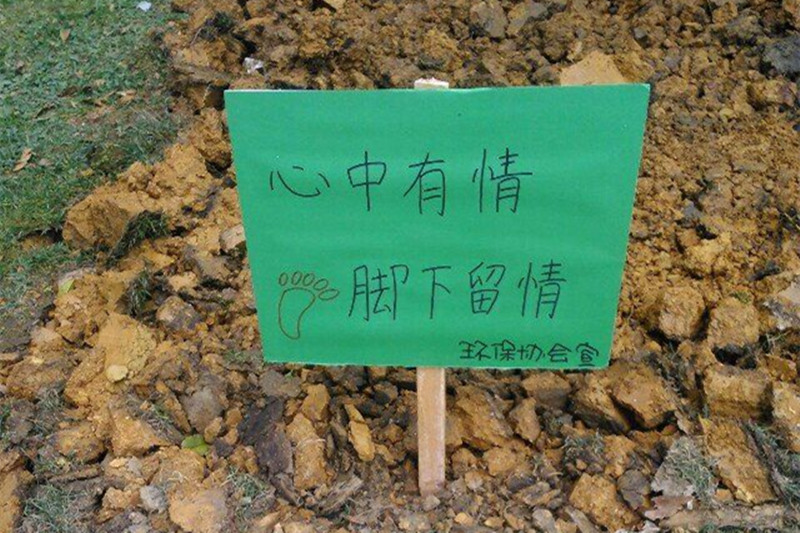 心中有情
脚下留情
环保协会宣